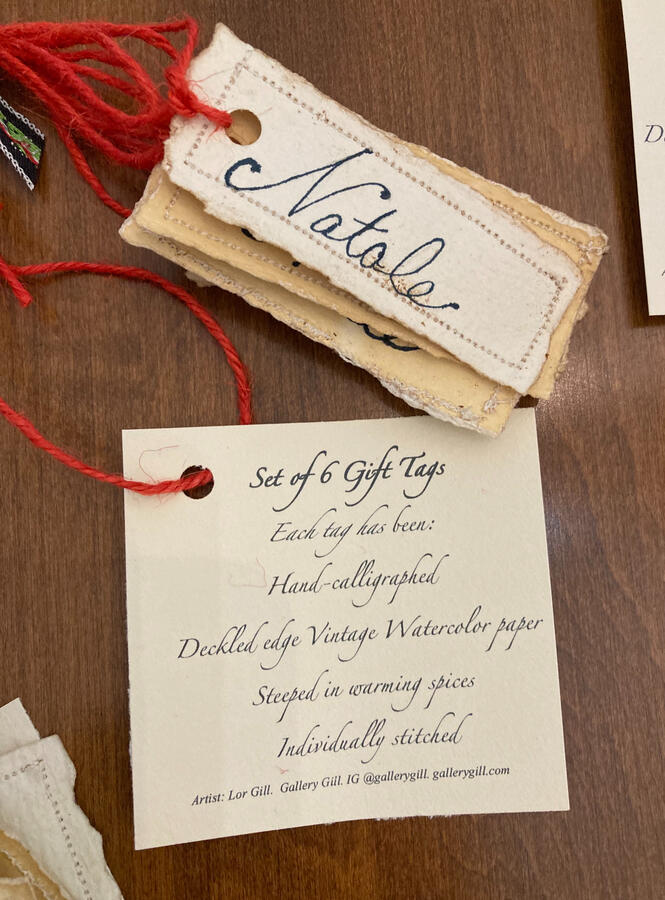 Natale
Set of 6 Gift Tags
Each tag has been:
Hand-calligraphed
Deckled edge Vintage Watercolor paper
Steeped in warming spices
Individually stitched
Artist: Lor Gill. Gallery Gill. IG @gallerygill. gallerygill.com